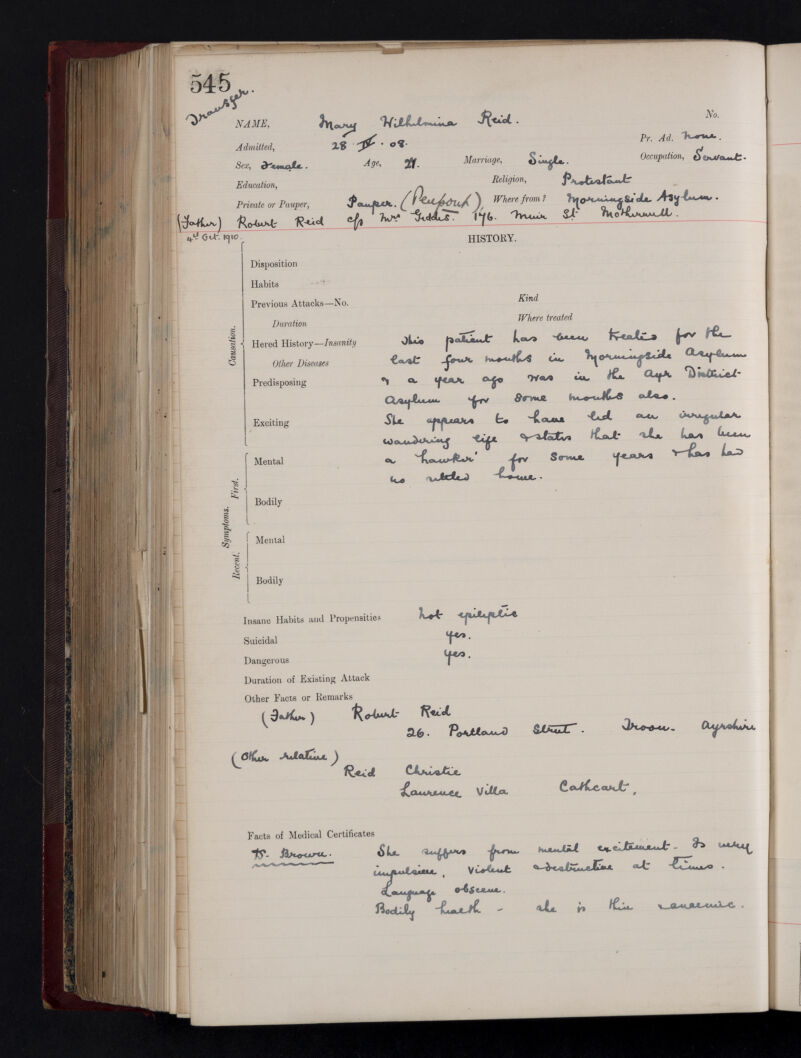 545
Transfer.
No.
NAME, Mary Wilhelmina Reid.
Pr. Ad. none.
Admitted, 28 · IV · 08.
Sex, Female. Age, 21. Marriage, Single. Occupation, Servant.
Education, Religion, Protestant
Private or Pauper, Pauper. Where from? Morningside Asylum.
(Father) Robert Reid c/o Mrs Geddes. 176. Muir St Motherwell.
4th Oct. 1910.
HISTORY.
Disposition
Habits
Previous Attacks—No. Kind
Duration Where treated
Causation.
Hered History—Insanity This patient has been treated for the
Other Diseases last four months in Morningside Asylum
Predisposing & a year ago was in the Ayr District
Asylum for some months also.
Exciting She appears to have led an irregular
wandering life & states that she has been
Mental a 'hawker' for some years & has had
no settled home.
Symptoms. First.
Bodily
Mental
Recent.
Bodily
Insane Habits and Propensities not epileptic
Suicidal yes.
Dangerous yes.
Duration of Existing Attack
Other Facts or Remarks
(Father) Robert Reid
26. Portland Street. Troon. Ayrshire
(Other relative)
Reid Christie
Laurence Villa Cathcart.
Facts of Medical Certificates
Dr. Brown. She suffers from mental excitement. Is very
impulsive, violent & destructive at times.
Language obscene.
Bodily health - she is thin & anaemic.